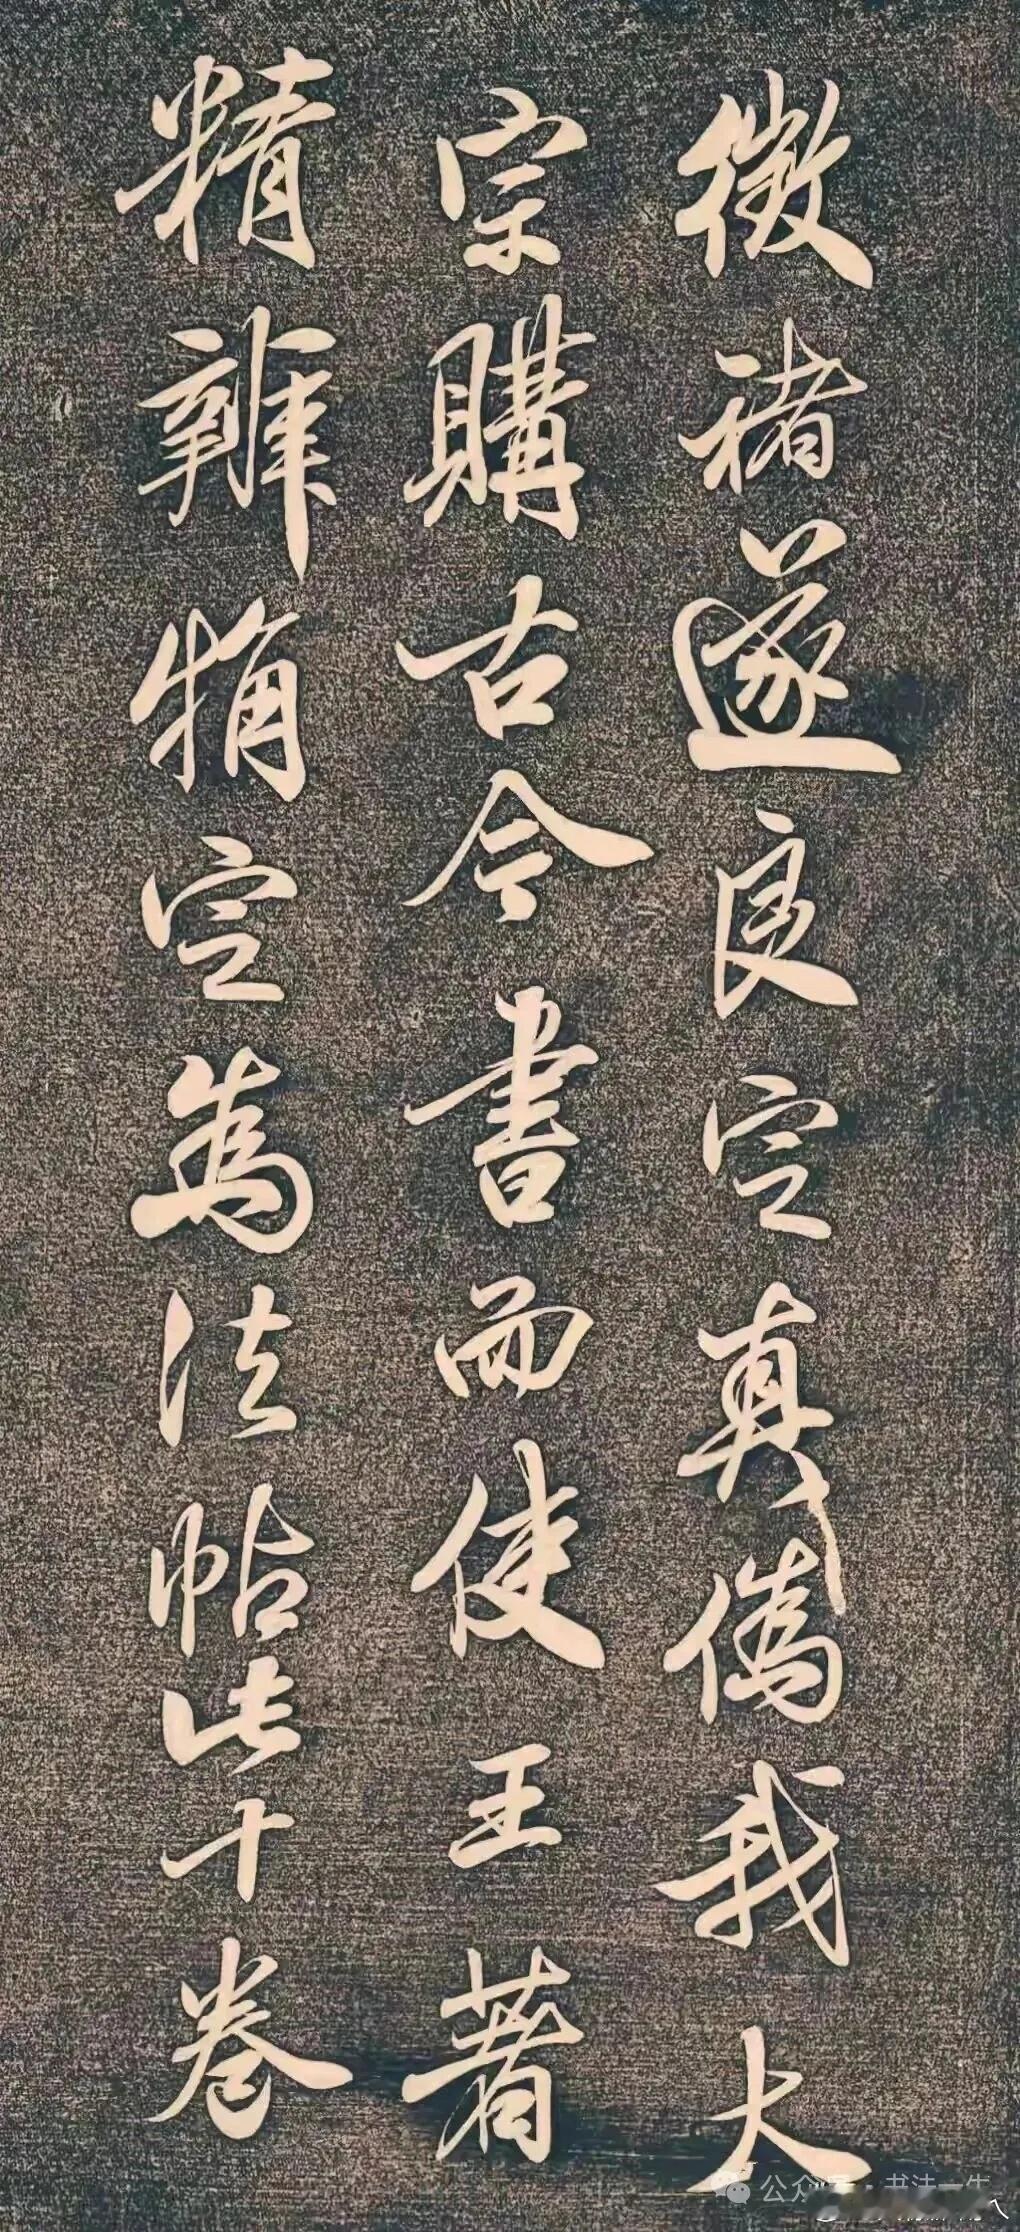 徵褚遂良定真偽我大
宗購古今書而使王著
精辨觕定為法帖此十卷
公众号·书法一生